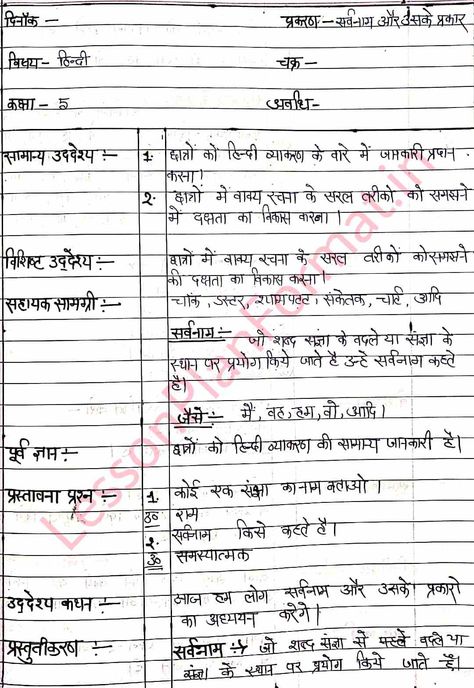 दिनाँक –
प्रकरण – सर्वनाम और उसके प्रकार
विषय – हिन्दी
चक्र –
कक्षा – 5
अवधि –
सामान्य उद्देश्य :–
1. छात्रों को हिन्दी व्याकरण के बारे में जानकारी प्रदान
करना।
2. छात्रों में वाक्य रचना के सरल तरीको को समझने
में दक्षता का विकास करना।
विशिष्ट उद्देश्य :–
छात्रों में वाक्य रचना के सरल तरीकों को समझने
की दक्षता का विकास करना।
सहायक सामग्री :–
चॉक, डस्टर, श्यामपट्ट, संकेतक, चार्ट, आदि
सर्वनाम :– जो शब्द संज्ञा के बदले या संज्ञा के
स्थान पर प्रयोग किये जाते है उन्हे सर्वनाम कहते
है।
जैसे :– मैं, वह, हम, वो, आदि।
पूर्व ज्ञान :–
छात्रों को हिन्दी व्याकरण की सामान्य जानकारी है।
प्रस्तावना प्रश्न :–
1. कोई एक संज्ञा का नाम बताओ।
उ० राम
2. सर्वनाम किसे कहते है।
उ० समस्यात्मक
उद्देश्य कथन :–
आज हम लोग सर्वनाम और उसके प्रकारो
का अध्ययन करेगे।
प्रस्तुतीकरण :–
सर्वनाम :– जो शब्द संज्ञा से पहले बदले या
संज्ञा के स्थान पर प्रयोग किये जाते है।
LessonPlanFormat.in